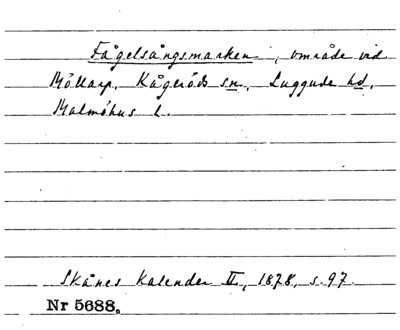 Fågelsångsmarken, område vid
Möllarp, Kågeröds sn, Luggude hd,
Malmöhus l.
Skånes Kalender II, 1878, s. 97.
Nr 5688.